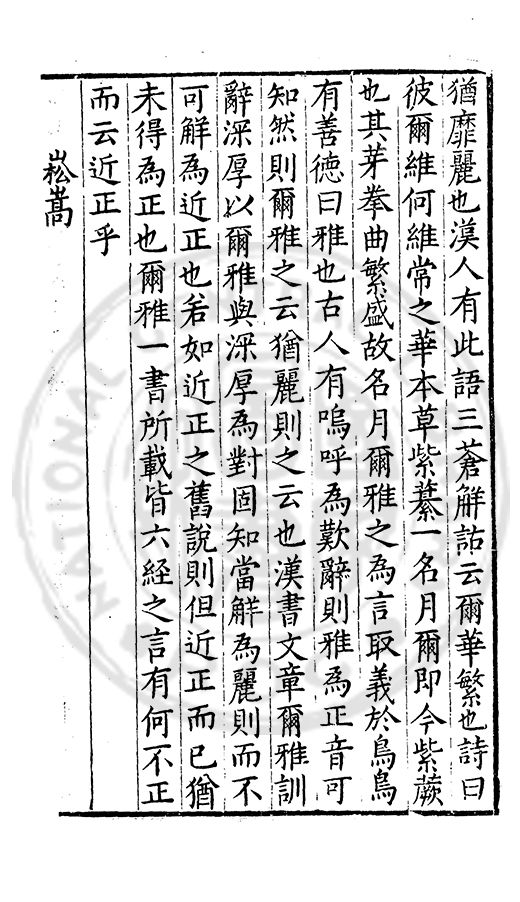 猶靡麗也漢人有此語三蒼解詁云爾華繁也詩曰
彼爾維何維常之華本草紫蘩一名月爾即今紫蕨
也其芽拳曲繁盛故名月爾雅之為言取義於烏烏
有善徳曰雅也古人有嗚呼為歎辭則雅為正音可
知然則爾雅之云猶麗則之云也漢書文章爾雅訓
辭深厚以爾雅與深厚為對固知當解為麗則而不
可解為近正也若如近正之舊說則但近正而已猶
未得為正也爾雅一書所載皆六経之言有何不正
而云近正乎
崧嵩
NATIONAL